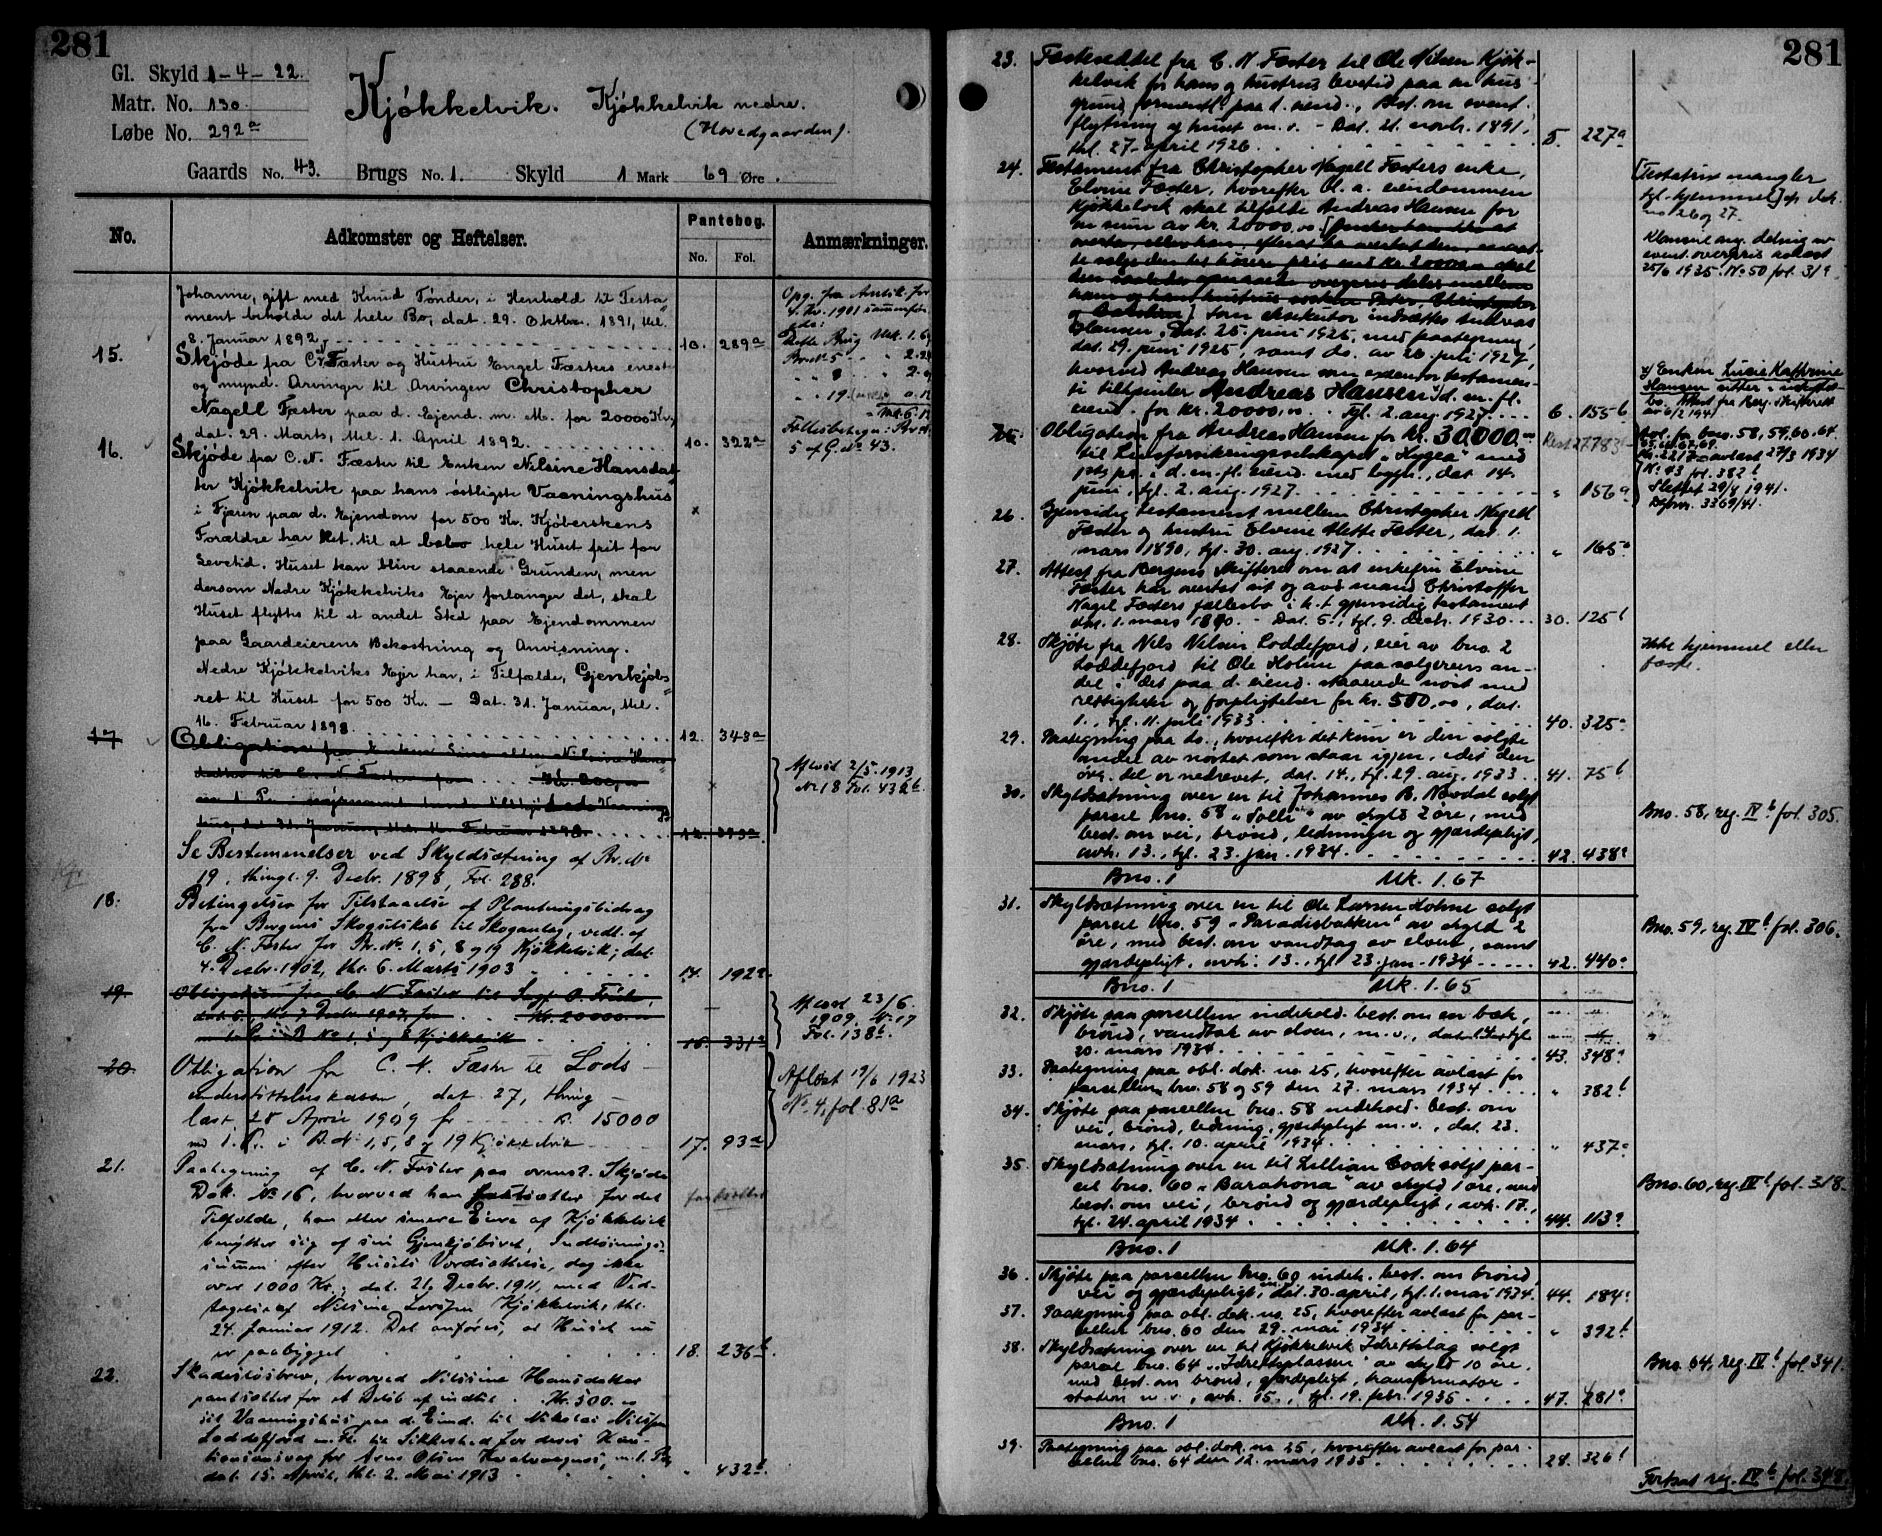 281
Gl. Skyld 1-4-22.
Matr. No. 130.
Løbe No. 292a
Kjøkkelvik. Kjøkkelvik nedre.
(Hovedgaarden).
Gaards No. 43. Brugs No. 1. Skyld 1 Mark 69 Øre.
No. Adkomster og Heftelser. Pantebog. No. Fol. Anmærkninger.
Johanne, gift med Knud Tønder, i Henhold til Testa-
ment beholde det hele Bo, dat. 29. Oktbr. 1891, thl.
8. Januar 1892. 10. 289a
Opg. fra Amtsk. for
4. Kv. 1901
Dette Brug Mk. 1.69
Brnr 5
15. Skjøde fra C. Fæster og Hustru Engel Fæsters enest
og mynd. Arvinger til Arvingen Christopher
Nagell Fæster paa d. Ejend. m. M. for 20000 Kr,
dat. 29. Marts, thl. 1. April 1892. 10. 322a
5 af G. No 43.
16. Skjøde fra C. N. Fæster til Enken Nilsine Hansdat-
ter Kjøkkelvik paa hans østligste Vaaningshus
i Fjæren paa d. Ejendom for 500 Kr. Kjøberskens
Forældre har Ret til at bebo hele Huset frit for
Levetid. Huset kan blive staaende Grunden, men
dersom Nedre Kjøkkelviks Ejer forlanger det, skal
Huset flyttes til et andet Sted paa Ejendommen
paa Gaardeierens Bekostning og Anvisning.
Nedre Kjøkkelviks Ejer har, i Tilfælde, Gjenkjøbs-
ret til Huset for 500 Kr. — Dat. 31. Januar, thl.
16. Februar 1898. 12. 343a
17. Obligation fra Enken Sine eller Nilsine Hans-
datter til C. N. Fæster for Kr. 200,
Afløst 2/5 1913
No 18 Fol. 432b.
hus, dat. 31. Januar, thl. 16. Februar 1898. 12. 343a
Se Bestemmelser ved Skyldsætning af Br. No
19, thingl. 9. Decbr. 1898, Fol. 288.
18. Betingelser for Tilstaaelse af Plantningsbidrag
fra Bergens Skogselskab til Skoganlæg, vedt. af
C. N. Fæster for Br. No. 1, 5, 8 og 19 Kjøkkelvik; dat.
4. Decbr. 1902, thl. 6. Marts 1903 14. 192a
19. Obligation fra C. N. Fæster til
dat. 5., thl. 7 Decbr 1907 for Kr. 20000.
Br. No 1, 5, 8 Kjøkkelvik 16. 331a
Afløst 23/6.
1909. No 17
Fol. 138b.
20. Obligation fra C. N. Fæster til Lods-
understøttelseskassen, dat. 27, thing-
læst 28 April 1909 for Kr. 15000
med 1. Pr. i B. No 1, 5, 8 og 19 Kjøkkelvik 17. 93a
Afløst 19/6 1923
No. 4, fol. 81a
21. Paategning af C. N. Fæster paa ovenst. Skjøde
Dok. No 16, hvorved han fastsætter for det
Tilfælde, han eller senere Eiere af Kjøkkelvik
benytter sig af sin Gjenkjøbsret, Indløsnings-
summen efter Husets Værdsættelse, dog ikke
over 1000 Kr.; dat. 21. Decbr. 1911, med Ved-
tagelse af Nilsine Kjøkkelvik, thl.
24. Januar 1912. Det anføres, at Huset nu
er paabygget 18. 236b
fastsætter
22. Skadesløsbrev, hvorved Nilsine Hansdatter
pantsætter for et Beløb af indtil Kr. 500.
sit Vaaningshus paa d. Eiend. til Nikolai Nilssen
Loddefjord m. Fl. til Sikkerhed for deres Kau-
tionsansvar for Arne Olsen m. 1. Pr,
dat. 15. April, thl. 2. Mai 1913 " 432b.
281
23. Festeseddel fra C. N. Fæster til Ole Nilsen Kjøk-
kelvik for hans og hustrus levetid paa en hus-
grund formentl. paa d. eiend., Best. om event.
flytning af huset m. v. - Dat. 21. novbr. 1891,
thl. 27. april 1926. 5. 227a
24. Testament fra Christopher Nagell Fæsters enke,
Elvine Fæster, hvorefter bl. a. eiendommen
Kjøkkelvik skal tilfalde Andreas Hansen for
en sum av kr. 20000,00
som eksekutor indsættes Andreas
Hansen. Dat. 25. juni 1925, med paategning
dat. 29. juni 1925, samt do. av 20. juli 1927,
hvorved Andreas Hansen som exekutor testamen-
ti tilskjøter Andreas Hansen d. m. fl.
eiend. for kr. 20000,00. Tgl. 2. aug. 1927. 6. 155b
[Testatrix mangler
tgl. hjemmel] cfr. dok.
no 26 og 27.
Klausul ang. deling av
event. overpris avlæst
25/6 1935. No 50 fol. 319
Enken Lucie Kathrine
Hansen sitter i uskiftet
bo. Attest fra Berg. Skifterett
av 6/2 1941
25. Obligation fra Andreas Hansen for kr. 30.000.-
til Livsforsikringsselskapet "Hygea" med
1ste pr. i d. m. fl. eiend. med bygn., dat. 14.
juni, tgl. 2. aug. 1927. " 156a
Avl. for bnr. 58, 59, 60, 64
avlæst 27/3 1934
No. 43 fol. 382b
Slettet 29/4 1941.
Dgbnr. 3369/41.
26. Gjensidig testament mellem Christopher Nagell
Fæster og hustru Elvine Mette Fæster, dat. 1.
mars 1890, tgl. 30. aug. 1927. " 165a
27. Attest fra Bergens Skifteret om at enkefru Elvine
Fæster har overtat sit og avd. mand Christoffer
Nagel Fæsters fællesbo i h. t. gjensidig testament
dat. 1. mars 1890. - Dat. 5., tgl. 9. decbr. 1930. 30. 125b
28. Skjøte fra Nils Nilsen Loddefjord, eier av bno. 2
Loddefjord til Ole Holme paa selgerens an-
del i det paa d. eiend. staaende nøst med
rettigheter og forpligtelser for kr. 500,00, dat.
1., tgl. 11. juli 1933. 40. 325a
Ikke hjemmel eller
feste.
29. Paategning paa do., hvorefter det kun er den solgte
andel av nøstet som staar igjen, idet den
øvr. del er nedrevet, dat. 14., tgl. 29. aug. 1933. 41. 75b
30. Skyldsætning over en til Johannes B. Nævdal solgt
parsel bno. 58 "Solli" av skyld 2 øre, med
best. om vei, brønd, ledninger og gjærdepligt,
avh. 13., tgl. 23. jan. 1934. 42. 438a
Bno. 58, reg. IVb fol. 305.
Bno. 1 Mk. 1.67
31. Skyldsætning over en til Ole Larsen Holme solgt
parsel bno. 59 "Paradisbakken" av skyld 2
øre, med best. om vandtag av elven, samt
gjærdepligt, avh. 13., tgl. 23. jan. 1934. 42. 440a
Bno. 59, reg. IVb fol. 306.
Bno. 1 Mk. 1.65
32. Skjøte paa parsellen indehold. best. om en bæk,
brønd, vandtak av elven, m. v., dat. tgl.
20. mars 1934. 43. 348a
33. Paategning paa obl. dok. no 25, hvorefter avlæst for
parsellen bno. 58 og 59 den 27. mars 1934. " 382b
34. Skjøte paa parsellen bno. 58 indehold. best. om
vei, brønd, ledning, gjærdepligt m. v., dat. 23.
mars, tgl. 10. april 1934. " 437a
35. Skyldsætning over en til Lillian Cook solgt par-
sel bno. 60 "Barahona" av skyld 1 øre, med
best. om vei, brønd og gjærdepligt, avh. 17.,
tgl. 24. april 1934. 44. 113a
Bno. 60, reg. IVb fol. 318.
Bno. 1 Mk. 1.64
36. Skjøte paa parsellen bno. 60 indeh. best. om brønd,
vei og gjærdepligt, dat. 30. april, tgl. 1. mai 1934. 44. 184a
37. Paategning paa obl. dok. no. 25, hvorefter avlæst for par-
sellen bno. 60 den 29. mai 1934. " 392b
38. Skyldsætning over en til Kjøkkelvik Idrettslag solgt
parsel bno. 64 "Idrettsplassen" av skyld 10 øre,
med best. om brønd, gjærdepligt, transformator-
station m. v., avh. 15., tgl. 19. febr. 1935. 47. 281a
Bno. 64, reg. IVb fol. 341.
Bno. 1 Mk. 1.54
39. Paategning paa obl. dok. no 25, hvorefter avlæst for par-
sellen bno. 64 den 12. mars 1935. 28. 326b
Fortsat reg. IVb fol. 348.